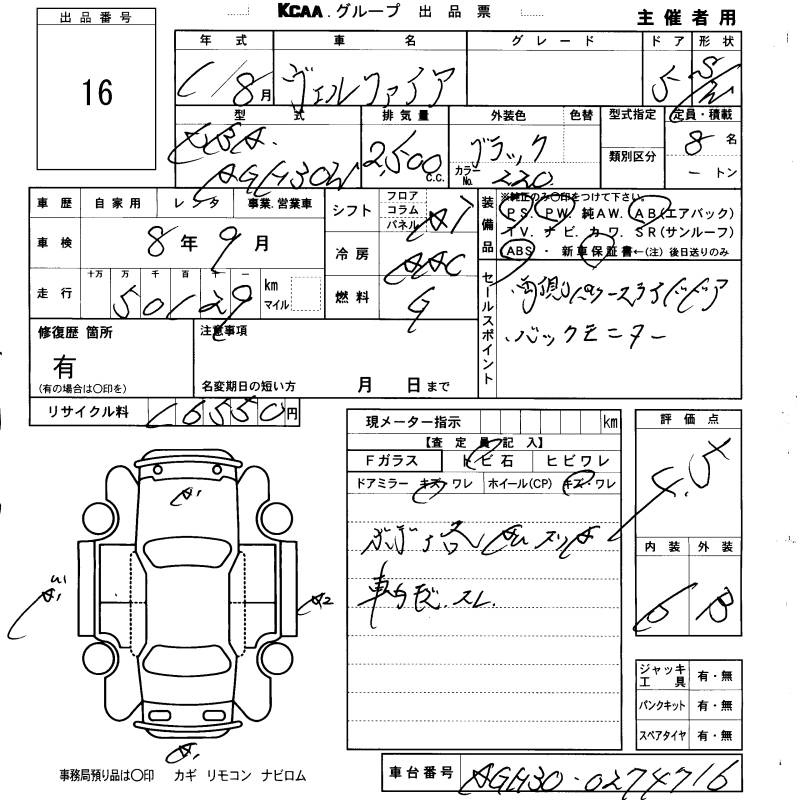 KCAA. グループ 出品票
主催者用
出品番号
16
年式 車名 グレード ドア 形状
1/8月 ヴェルファイア 5 S/W
型式 排気量 外装色 色替 型式指定 定員・積載
DBA. 2,500 C.C. ブラック 8 名
AGH30W カラーNo. 220 類別区分 ー トン
車歴 自家用 レンタ 事業.営業車
車検 8年9月
走行 十万 万 千 百 十 一 km マイル
50129
シフト フロア コラム パネル AT
冷房 AAC
燃料 G
装備品 ※純正のみ〇印をつけて下さい。
PS. PW. 純AW. AB(エアバック)
TV. ナビ. カワ. SR(サンルーフ)
ABS ・ 新車保証書←(注) 後日送りのみ
セールスポイント
両側パワースライドドア
バックモニター
修復歴 箇所
有
(有の場合は〇印を)
注意事項
名変期日の短い方 月 日まで
リサイクル料 16550円
現メーター指示 km
【査定員記入】
Fガラス トビ石 ヒビワレ
ドアミラー キズ・ワレ ホイール(CP) キズ・ワレ
スリキ
車内 スレ.
評価点
4.5
内装 外装
B B
A1
A1
A2
A1
ジャッキ工具 有・無
パンクキット 有・無
スペアタイヤ 有・無
事務局預り品は〇印 カギ リモコン ナビロム
車台番号 AGH30-0274716